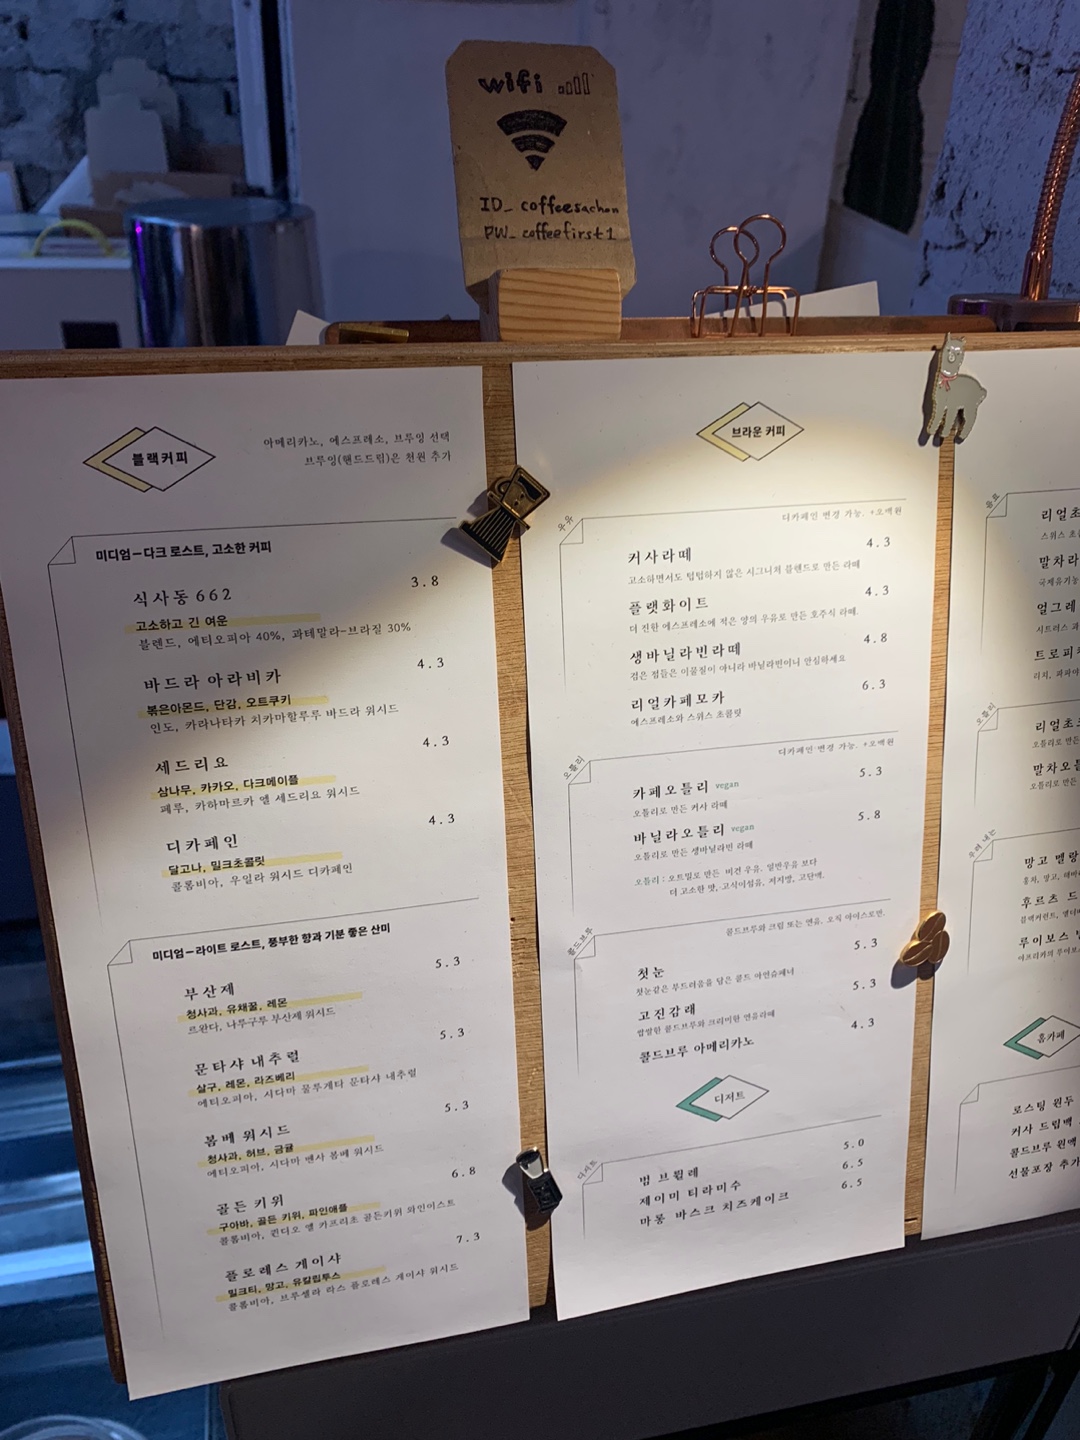 wifi
ID_ coffeesachon
PW_ coffeefirst1
블랙커피
아메리카노, 에스프레소, 브루잉 선택
브루잉(핸드드립)은 천원 추가
미디엄-다크 로스트, 고소한 커피
식사동 662 3.8
고소하고 긴 여운
블렌드, 에티오피아 40%, 과테말라-브라질 30%
바드라 아라비카 4.3
볶은아몬드, 단감, 오트쿠키
인도, 카라나타카 치카마할루루 바드라 워시드
세드리요 4.3
삼나무, 카카오, 다크메이플
페루, 카하마르카 엘 세드리요 워시드
디카페인 4.3
달고나, 밀크초콜릿
콜롬비아, 우일라 워시드 디카페인
미디엄-라이트 로스트, 풍부한 향과 기분 좋은 산미
부산제 5.3
청사과, 유채꿀, 레몬
르완다, 나투구루 부산제 워시드
문타샤 내추럴 5.3
살구, 레몬, 라즈베리
에티오피아, 시다마 물루게타 문타샤 내추럴
봄베 워시드 5.3
청사과, 허브, 금귤
에티오피아, 시다마 벤사 봄베 워시드
골든 키위 6.8
구아바, 골든 키위, 파인애플
콜롬비아, 퀸디오 엘 카프리초 골든키위 와인이스트
플로레스 게이샤 7.3
밀크티, 망고, 유칼립투스
콜롬비아, 브루셀라 라스 플로레스 게이샤 워시드
브라운 커피
우유
디카페인 변경 가능. +오백원
커사라떼 4.3
고소하면서도 텁텁하지 않은 시그니처 블렌드로 만든 라떼
플랫화이트 4.3
더 진한 에스프레소에 적은 양의 우유로 만든 호주식 라떼.
생바닐라빈라떼 4.8
검은 점들은 이물질이 아니라 바닐라빈이니 안심하세요
리얼카페모카 6.3
에스프레소와 스위스 초콜릿
오틀리
디카페인 변경 가능. +오백원
카페오틀리 vegan 5.3
오틀리로 만든 커사 라떼
바닐라오틀리 vegan 5.8
오틀리로 만든 생바닐라빈 라떼
오틀리 : 오트밀로 만든 비건 우유. 일반우유 보다
더 고소한 맛, 고식이섬유, 저지방, 고단백.
콜드브루
콜드브루와 크림 또는 연유. 오직 아이스로만.
첫눈 5.3
첫눈같은 부드러움을 담은 콜드 아인슈페너
고진감래 5.3
쌉쌀한 콜드브루와 크리미한 연유라떼
콜드브루 아메리카노 4.3
디저트
디저트
범 브륄레 5.0
제이미 티라미수 6.5
마롱 바스크 치즈케이크 6.5
음료
리얼초
스위스 초
말차라
국제유기농
얼그레
시트러스 과
트로피
리치, 파파야
오틀리
리얼초
오틀리로 만든
말차오틀
오틀리로 만든
우려 내는
망고 멜랑
홍차, 망고, 해바
후르츠 드
블랙커런트, 엘더
루이보스
아프리카의 루이보
홈카페
로스팅 원두
커사 드립백
콜드브루 원액
선물포장 추가